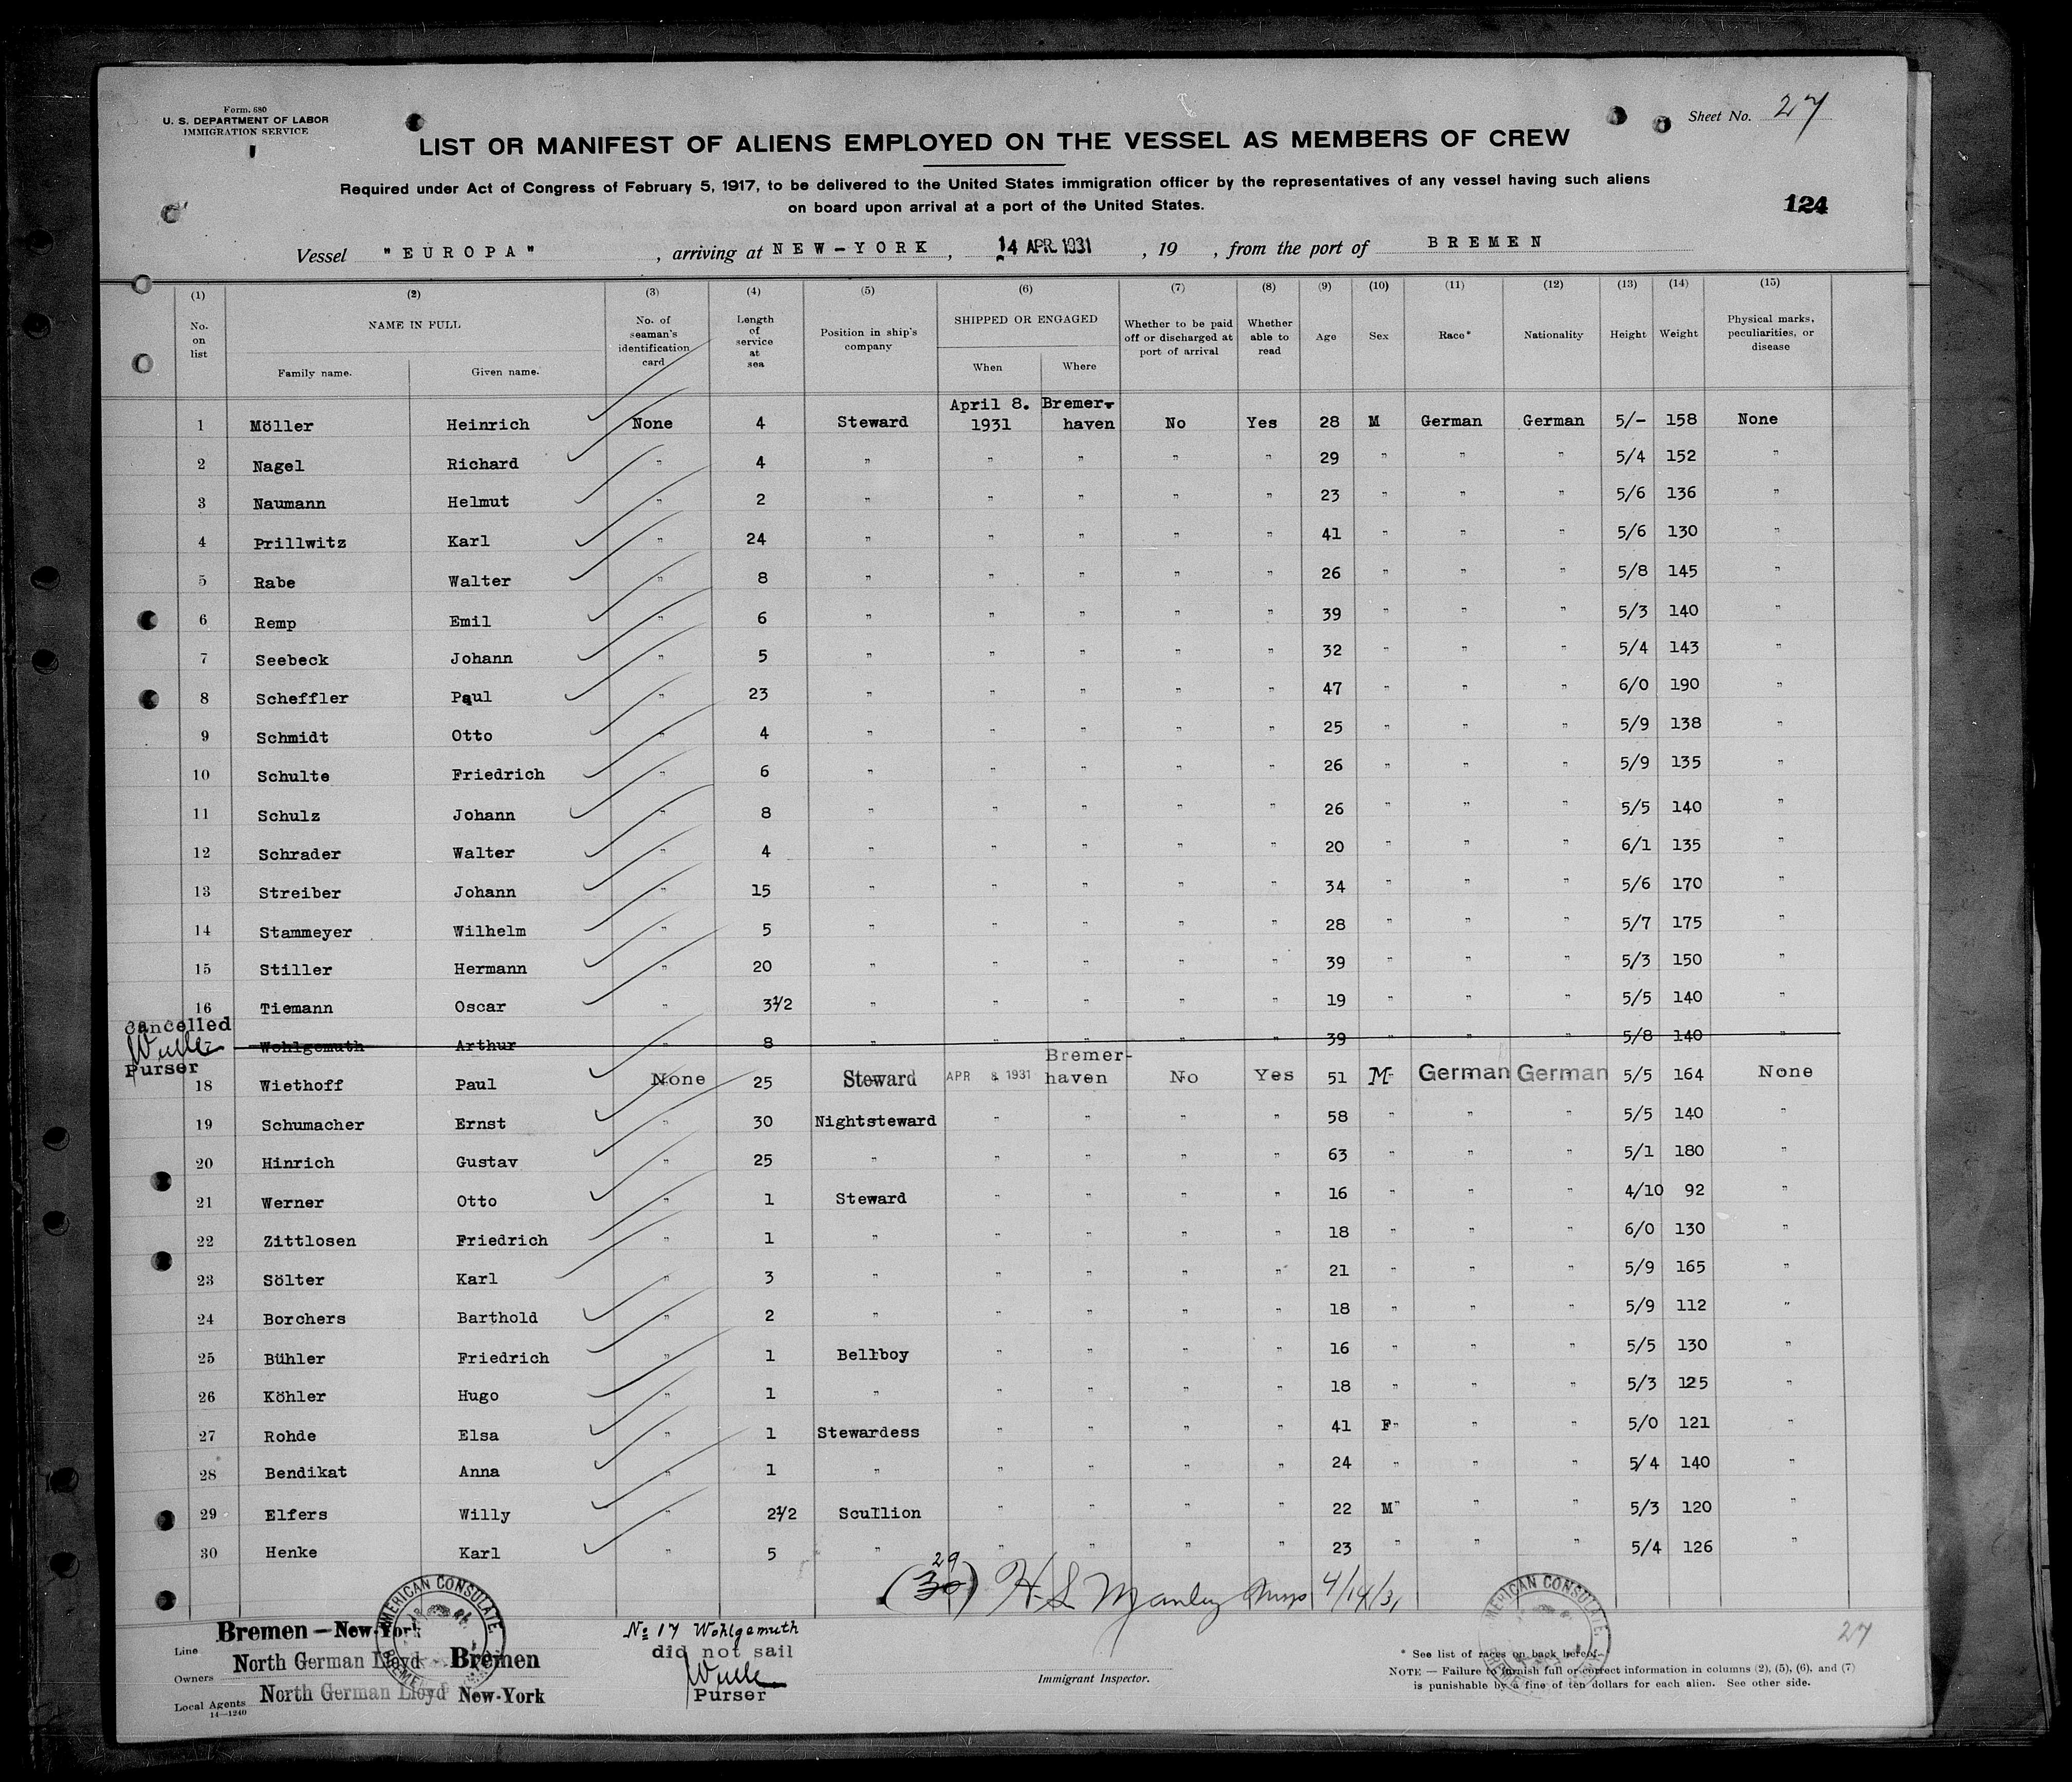 Form. 680
U. S. DEPARTMENT OF LABOR
IMMIGRATION SERVICE
Sheet No. 27
LIST OR MANIFEST OF ALIENS EMPLOYED ON THE VESSEL AS MEMBERS OF CREW
Required under Act of Congress of February 5, 1917, to be delivered to the United States immigration officer by the representatives of any vessel having such aliens
on board upon arrival at a port of the United States.
124
Vessel "EUROPA" , arriving at NEW-YORK , 14 APR. 1931 , 19 , from the port of BREMEN
(1) (2) (3) (4) (5) (6) (7) (8) (9) (10) (11) (12) (13) (14) (15)
No. on list NAME IN FULL Family name. Given name. No. of seaman's identification card Length of service at sea Position in ship's company SHIPPED OR ENGAGED When Where Whether to be paid off or discharged at port of arrival Whether able to read Age Sex Race* Nationality Height Weight Physical marks, peculiarities, or disease
1 Möller Heinrich None 4 Steward April 8. 1931 Bremer-haven No Yes 28 M German German 5/- 158 None
2 Nagel Richard " 4 " " " " " 29 " " " 5/4 152 "
3 Naumann Helmut " 2 " " " " " 23 " " " 5/6 136 "
4 Prillwitz Karl " 24 " " " " " 41 " " " 5/6 130 "
5 Rabe Walter " 8 " " " " " 26 " " " 5/8 145 "
6 Remp Emil " 6 " " " " " 39 " " " 5/3 140 "
7 Seebeck Johann " 5 " " " " " 32 " " " 5/4 143 "
8 Scheffler Paul " 23 " " " " " 47 " " " 6/0 190 "
9 Schmidt Otto " 4 " " " " " 25 " " " 5/9 138 "
10 Schulte Friedrich " 6 " " " " " 26 " " " 5/9 135 "
11 Schulz Johann " 8 " " " " " 26 " " " 5/5 140 "
12 Schrader Walter " 4 " " " " " 20 " " " 6/1 135 "
13 Streiber Johann " 15 " " " " " 34 " " " 5/6 170 "
14 Stammeyer Wilhelm " 5 " " " " " 28 " " " 5/7 175 "
15 Stiller Hermann " 20 " " " " " 39 " " " 5/3 150 "
16 Tiemann Oscar " 3 1/2 " " " " " 19 " " " 5/5 140 "
Cancelled
Wohlgemuth Arthur 8 " " " " " 39 " " " 5/8 140 "
Purser
18 Wiethoff Paul None 25 Steward APR 8 1931 Bremer-haven No Yes 51 M German German 5/5 164 None
19 Schumacher Ernst " 30 Nightsteward " " " " 58 " " " 5/5 140 "
20 Hinrich Gustav " 25 " " " " " 63 " " " 5/1 180 "
21 Werner Otto " 1 Steward " " " " 16 " " " 4/10 92 "
22 Zittlosen Friedrich " 1 " " " " " 18 " " " 6/0 130 "
23 Sölter Karl " 3 " " " " " 21 " " " 5/9 165 "
24 Borchers Barthold " 2 " " " " " 18 " " " 5/9 112 "
25 Bühler Friedrich " 1 Bellboy " " " " 16 " " " 5/5 130 "
26 Köhler Hugo " 1 " " " " " 18 " " " 5/3 125 "
27 Rohde Elsa " 1 Stewardess " " " " 41 F " " 5/0 121 "
28 Bendikat Anna " 1 " " " " " 24 " " " 5/4 140 "
29 Elfers Willy " 2 1/2 Scullion " " " " 22 M " " 5/3 120 "
30 Henke Karl " 5 " " " " " 23 " " " 5/4 126 "
29
(30) H S Manley 4/14/31
AMERICAN CONSULATE
AMERICAN CONSULATE
Line Bremen - New-York
Owners North German Lloyd Bremen
Local Agents North German Lloyd New-York
14-1240
No 17 Wohlgemuth
did not sail
Purser
Immigrant Inspector.
27
* See list of races on back hereof.
NOTE — Failure to furnish full or correct information in columns (2), (5), (6), and (7)
is punishable by a fine of ten dollars for each alien. See other side.